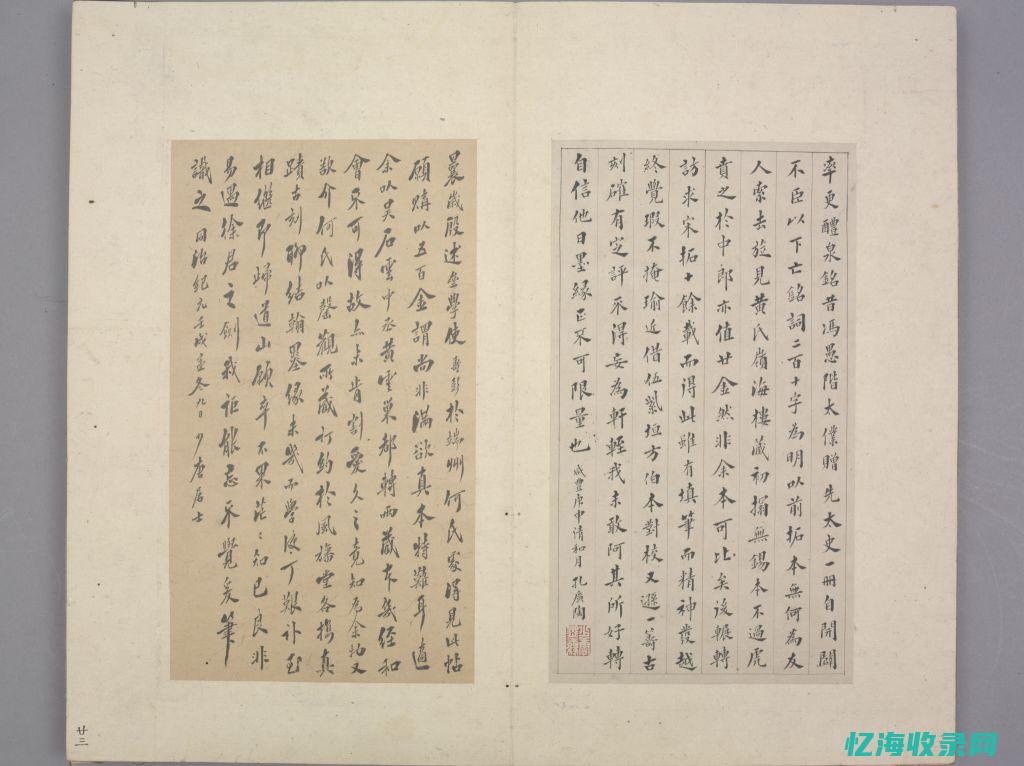 率更醴泉銘昔馮愚階太僕贈先太史一冊自開闢
不臣以下亡銘詞二百十字為明以前拓本無何為友
人索去旋見黃氏嶺海樓藏初搨無錫本不過虎
賁之於中郎亦值廿金然非余本可比矣後輾轉
訪求宋拓十餘載而得此雖有填筆而精神發越
終覺瑕不掩瑜近借伍紫垣方伯本對校又遜一籌古
刻確有定評不得妄為軒輊我未敢阿其所好轉
自信他日墨緣正不可限量也 咸豐庚申清和月孔廣陶
晨歲殷述堂學使壽彭於端州何氏處得見此帖
願購以五百金謂尚非滿欲真本特難耳適
余以吳石雲中丞黃雲巢都轉兩藏本幾經和
會不可得故亦未肯割愛久之竟知為余物又
款介何氏以罄觀所藏訂約於風旛堂各携真
蹟古刻聊結翰墨緣未幾而學使丁艱訃至
相繼即歸道山願卒不果茫茫知己良非
易遇徐君之劍我詎能忘不覺爰筆
識之 同治紀元壬戌孟冬九日 少唐居士
廿三
忆海收录网